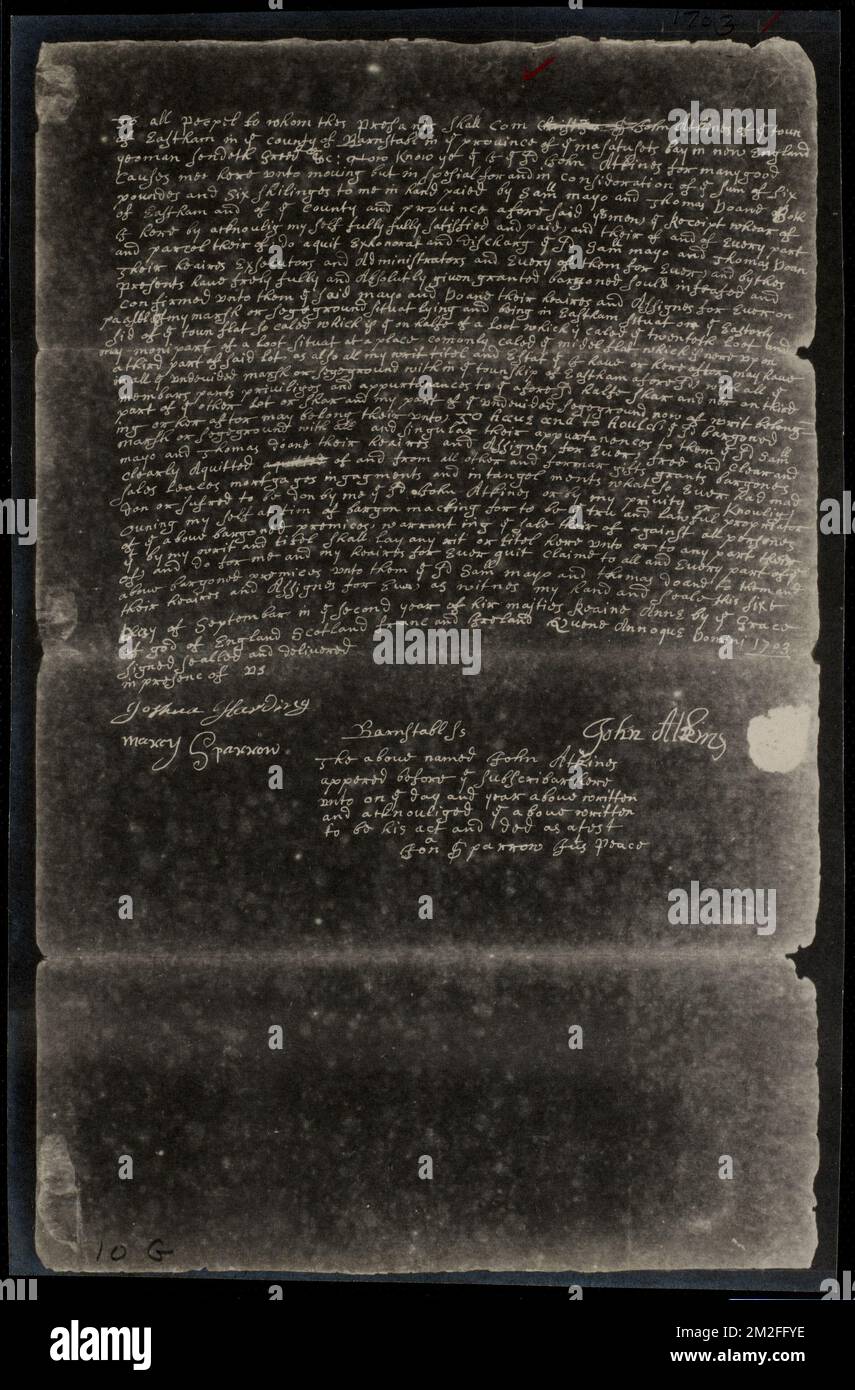 1703
all peepel to whom thes presanes shall com John Atkines of yͤ town
of Eastham in yͤ county of Barnstabl in yͤ province of yͤ masatusets bay in new England
yeoman sendeth Greed &c: now Know ye yͭ I yͤ sᵈ John Atkines for many good
Causes mee here unto moving but in spesial for and in consideration of yͤ sum of six
poundes and six skilinges to me in hand paied by Samˡˡ mayo and Thomas Doane Both
of Eastham and of yͤ County and province afore said yemen yͤ Receipt whear of
I here by acknoulig my self fully fully satisfied and paid, and their of and of Every part
and parcel their of do aquit Exhonorat and Discharg yͤ sᵈ Samˡˡ mayo and Thomas Doan
their heaires Exsekutors and Administrators and Every of them for Ever, and by thes
presents have freely fully and Absolutly given granted bargoned sould infefsed and
Confirmed unto them yͤ said mayo and Doane their heaires and Assignes for Ever on
of my marsh or segeground situat lying and being in Eastham situat on yͤ Eastorly
sid of yͤ town flat so caled which is yͤ on halfe of a loot which is caled yͤ twentoth loot and
part of a loot situat at a place comonly caled yͤ midel flat which yͤ
a third part of said lot as also all my writ titel and Estat yͭ I have or here after may have
in all yͤ undevided marsh or segeground with in yͤ township of Eastham afore sᵈ with all yͤ
members parts priviliges and appurtanances to yͤ afore sᵈ halfe shar and on third
part of yͤ other lot or shar and my part of yͤ undevided segeground now of writ belong
ing or her aftor may belong their unto, TO HAVE and to Hould yͤ sᵈ bargoned
marsh or segeground with all and singular their appurtanances to them yͤ sᵈ Samˡˡ
mayo and Thomas doane their heaires and Assignes for Ever, free and Clear and
Clearly Aquitted of and from all other and formar gifts grants bargones
sales leaces mortgages ingagments and intangelments what so Ever had mad
don or sufred to be don by me yͤ sᵈ John Atkines or by my privity or Knoulig,
owning my self at tim of bargon macking for to be yͤ tru and lawful propriator
of yͤ above bargoned premices, warranting yͤ sale their of against all persones
yͭ by my writ and titel shall lay any rit or titel here unto or to any part their
of, and do for me and my heairs for Ever quit Claime to all and Every part of yͤ
above bargoned premices unto them yͤ sᵈ Samˡˡ mayo and Thomas doane to them and
their heaires and Assignes for Ever, as witnes my hand and seale this sixt
Day of Septembar in yͤ second year of hir masties Reaine Anne by yͤ Grace
of god of England Scotland france and Ireland Quene Annoque Domini 1703
signed sealled and delivered
in presence of us
Joshua Harding
marcy Sparrow
John Atkins
Barnstabl ss
The above named John Atkines
appered before yͤ subscribar here
unto on yͤ day and year above written
and acknouliged yͤ above written
to be his act and ded as atest
Jonᵃ Sparrow Jus Peace
10 G
alamy
Image ID: 2M2FFYE
www.alamy.com